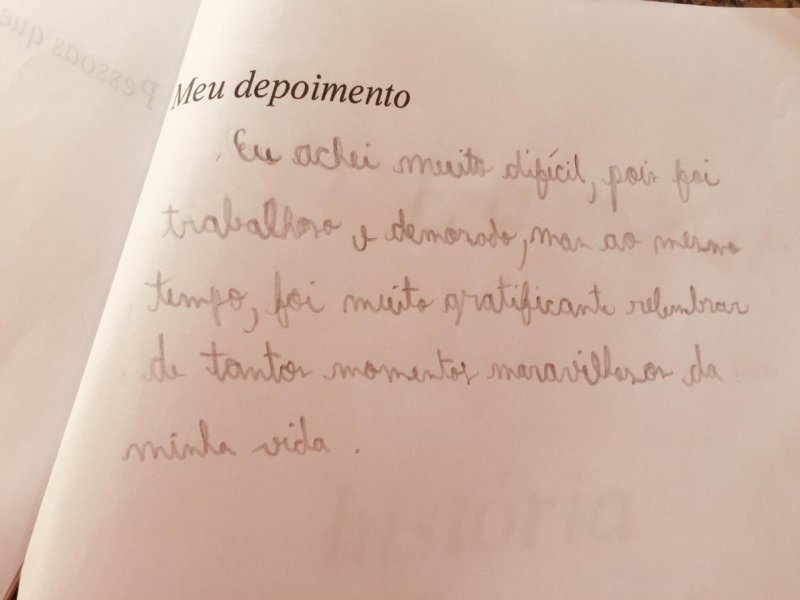 Meu depoimento
Eu achei muito difícil, pois foi
trabalhoso e demorado, mas ao mesmo
tempo, foi muito gratificante relembrar
de tantos momentos maravilhosos da
minha vida.
Pessoas que